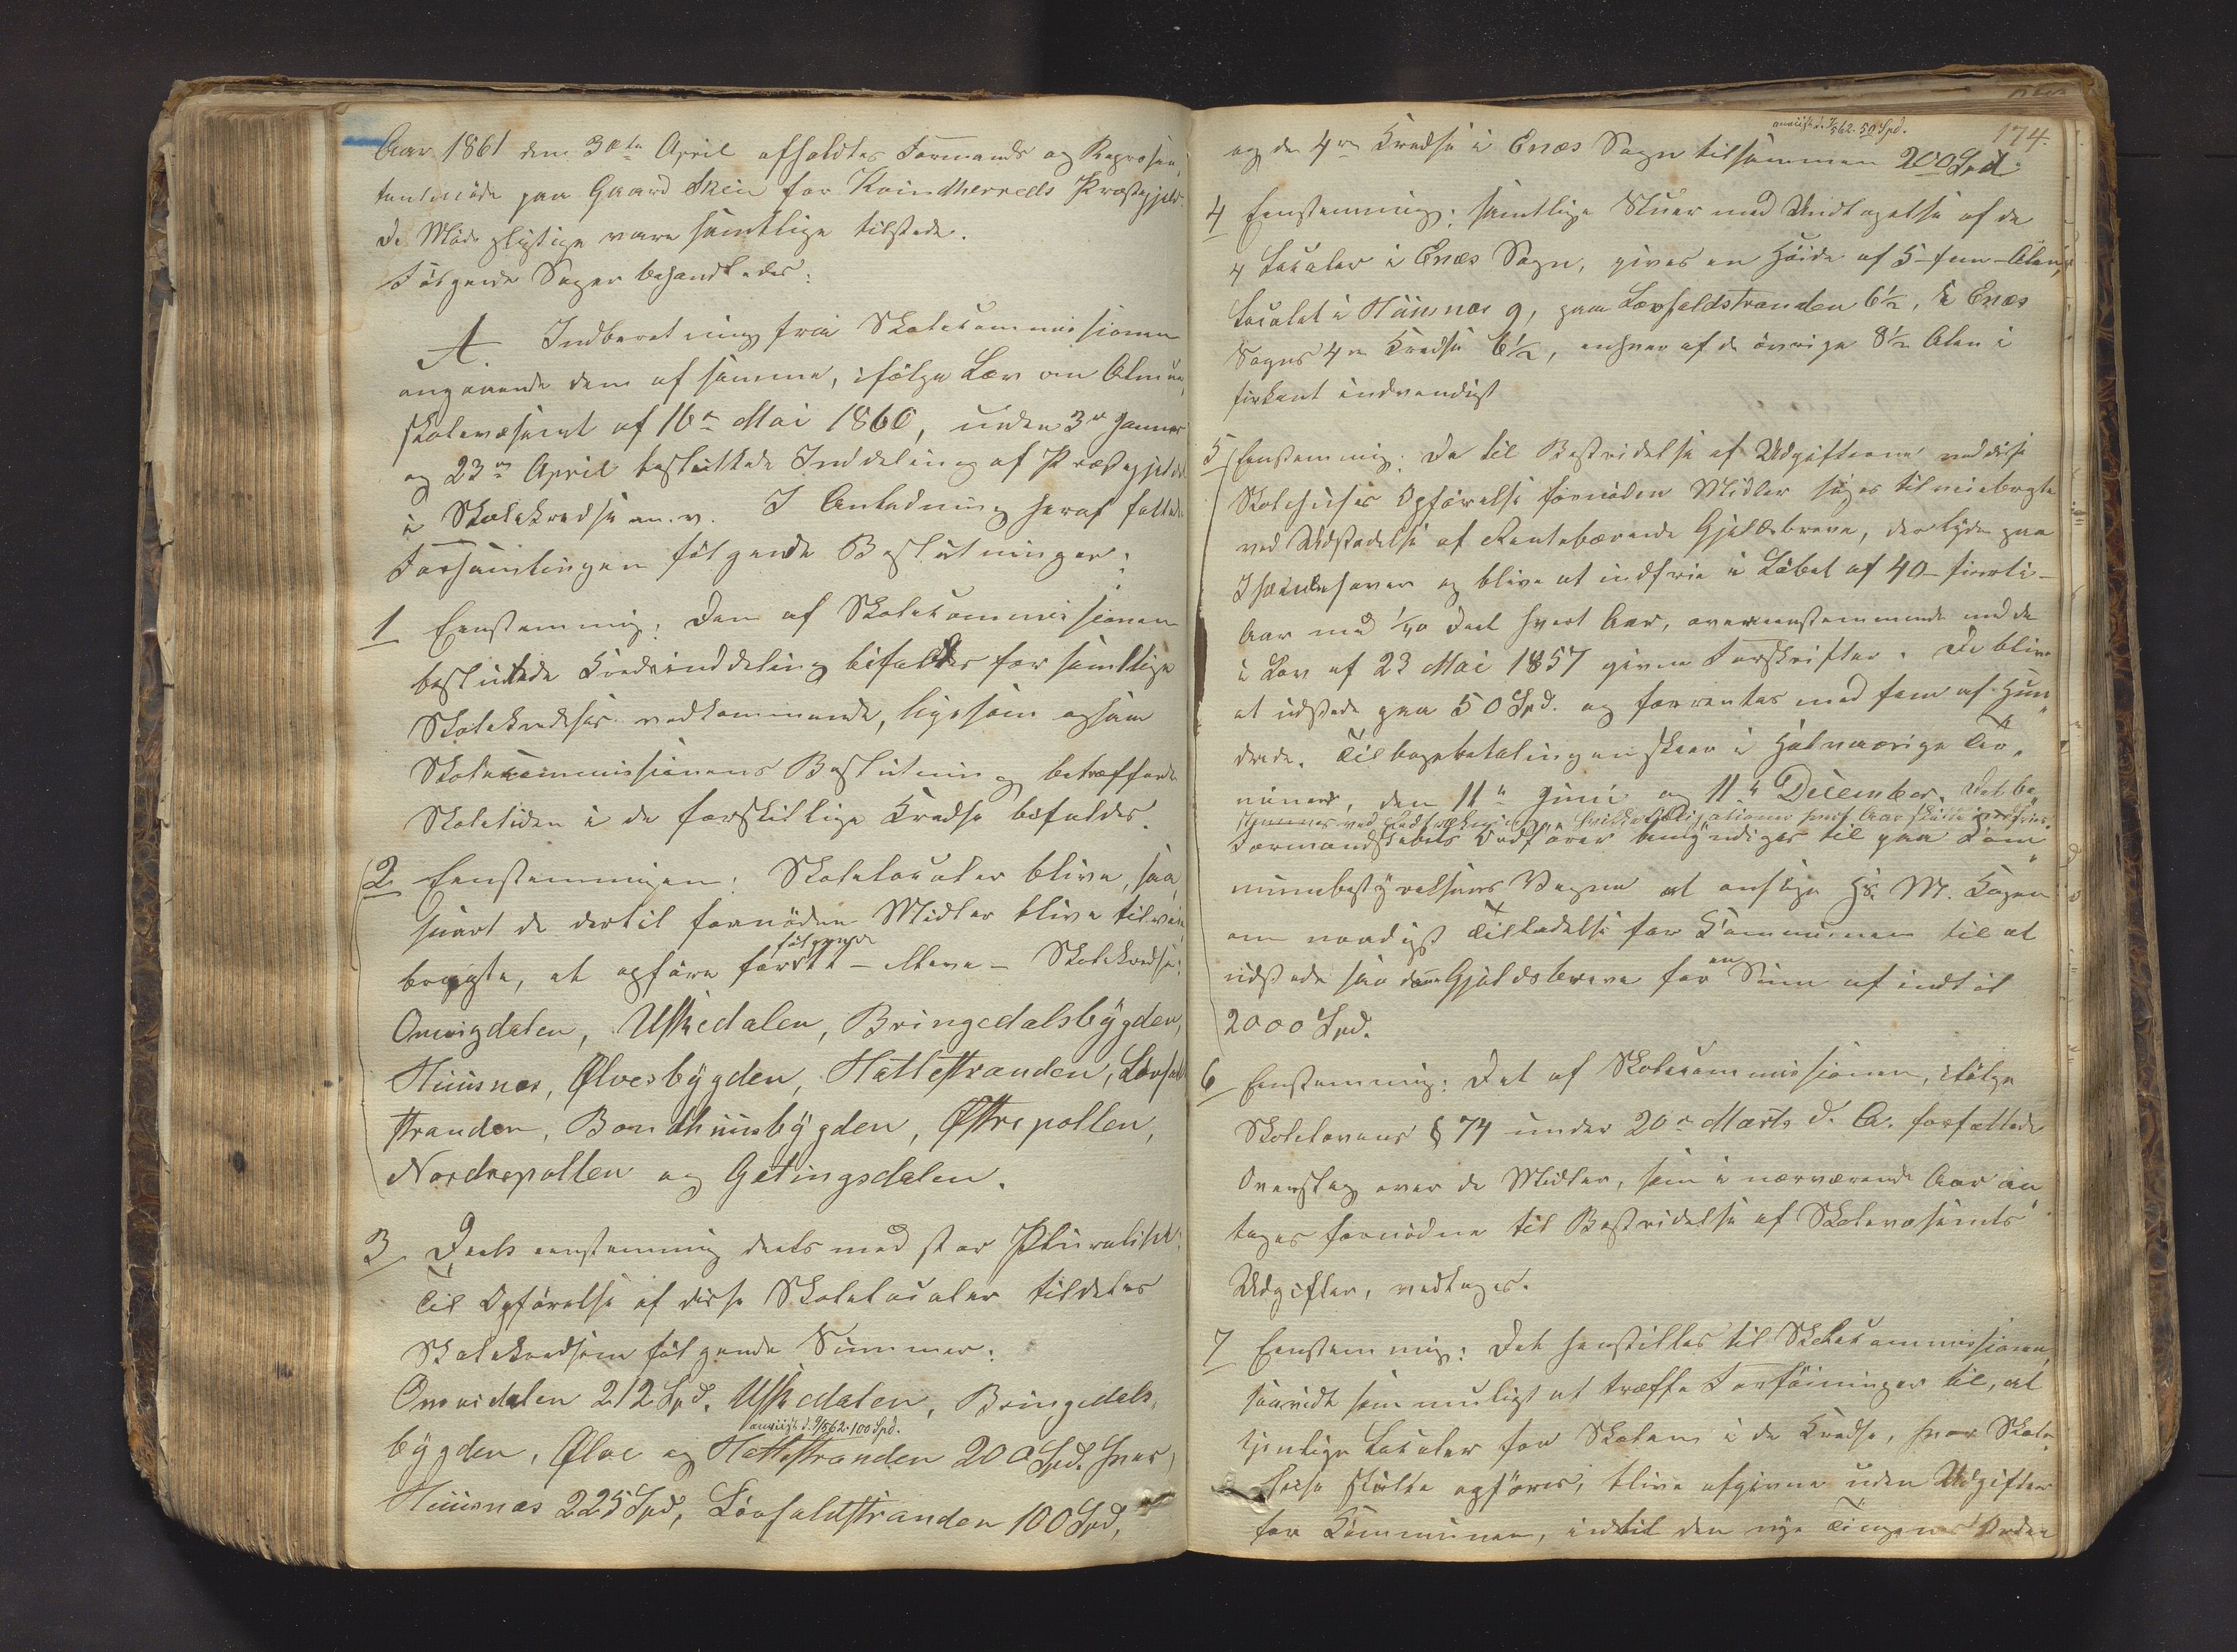 Aar 1861 den 30te April afholdtes Formands og Repræsen-
tantmöde paa Gaard Skeie for Kvindherreds Præstegjeld.
De Mödepligtige vare samtlige tilstede.
Fölgende Sager behandledes:
A. Indberetning fra Skolekommissionen
angaaende dem af samme, ifölge Lov om Almue-
skolevæsenet af 16de Mai 1860, under 3de Januar
og 23de April besluttede Inddeling af Præstegjeldet
i Skolekredse m. v. I Anledning heraf fattede
Forsamlingen fölgende Beslutninger:
1 Eenstemmig: Den af Skolekommissionen
besluttede Kredsinddeling bifaldes for samtlige
Skolekredses vedkommende, ligesom ogsaa
Skolecommissionens Beslutning betræffende
Skoletiden i de forskillige Kredse bifaldes.
2 Eenstemmigen: Skolelocaler blive, saa-
snart de dertil fornödne Midler blive tilveie-
bragte, at opföre for fölgende - elleve - Skolekredse:
Omvigdalen, Uskedalen, Bringedalsbygden,
Huusnæs, Ølvesbygden, Hattestranden, Løvfald-
stranden, Bondhuusbygden, Østrepollen,
Nordrepollen og Getingsdalen.
3 Deels eenstemmig deels med stor Pluralitet:
Til Opförelse af disse Skolelocaler tildeles
Skolekredsene fölgende Summer:
Omvidalen 212 Spd. Uskedalen, Bringedals-
anviist d. 9/5 62. 100 Spd.
bygden, Ølve og Hattestranden 200 Spd. hver,
Huusnæs 225 Spd, Løvfaldstranden 100 Spd,
174.
anviist d. 9/5 62. 50 Spd.
og de 4re Kredse i Enæs Sogn tilsammen 200 Spd.
4 Eenstemmig: samtlige Stuer med Undtagelse af de
4 Localer i Enæs Sogn, gives en Höide af 5 - fem - Alen,
Localet i Huusnæs 9, paa Løvfaldstranden 6½, i Enæs
Sogns 4re Kredse 6½, enhver af de övrige 8½ Alen i
firkant indvendigt
5 Eenstemmig: De til Bestridelse af Udgifterne ved disse
Skolehuses Opförelse fornödne Midler söges tilveiebragte
ved Udstedelse af Rentebærende Gjeldsbreve, der lyde paa
Ihændehaver og blive at indfrie i Löbet af 40 - firti -
Aar med 1/40 Deel hvert Aar, overeensstemmende med de
i Lov af 23 Mai 1857 givne Forskrifter. De blive
at udstede paa 50 Spd. og forrentes med fem af Hun-
drede. Tilbagebetalingen skeer i halvaarige Ter-
miner, den 11te Juni og 11te December. Det be-
stemmes ved Lodtrækning, hvilke Obligationer hvert Aar skulle indfries.
Formandskabets Ordförer bemyndiges til paa Com-
munebestyrelsens Vegne at ansöge Hs. M. Kongen
om naadigst Tilladelse for Kommunen til at
udstede saadanne Gjeldsbreve for en Sum af indtil
2000 Spd.
6 Eenstemmig: Det af Skolecommissionen, ifölge
Skolelovens § 74 under 20de Marts d. A. forfattede
Overslag over de Midler, som i nærværende Aar an-
tages fornödne til Bestridelse af Skolevæsenets
Udgifter, vedtages.
7 Eenstemmig: Det henstilles til Skolekommissionen,
saavidt som muligt at træffe Forföininger til, at
tjenlige Localer for Skolen i de Kredse, hvor Skole-
huse skulle opföres, blive afgivne uden Udgifter
for Kommunen, indtil den nye Tingenes Orden